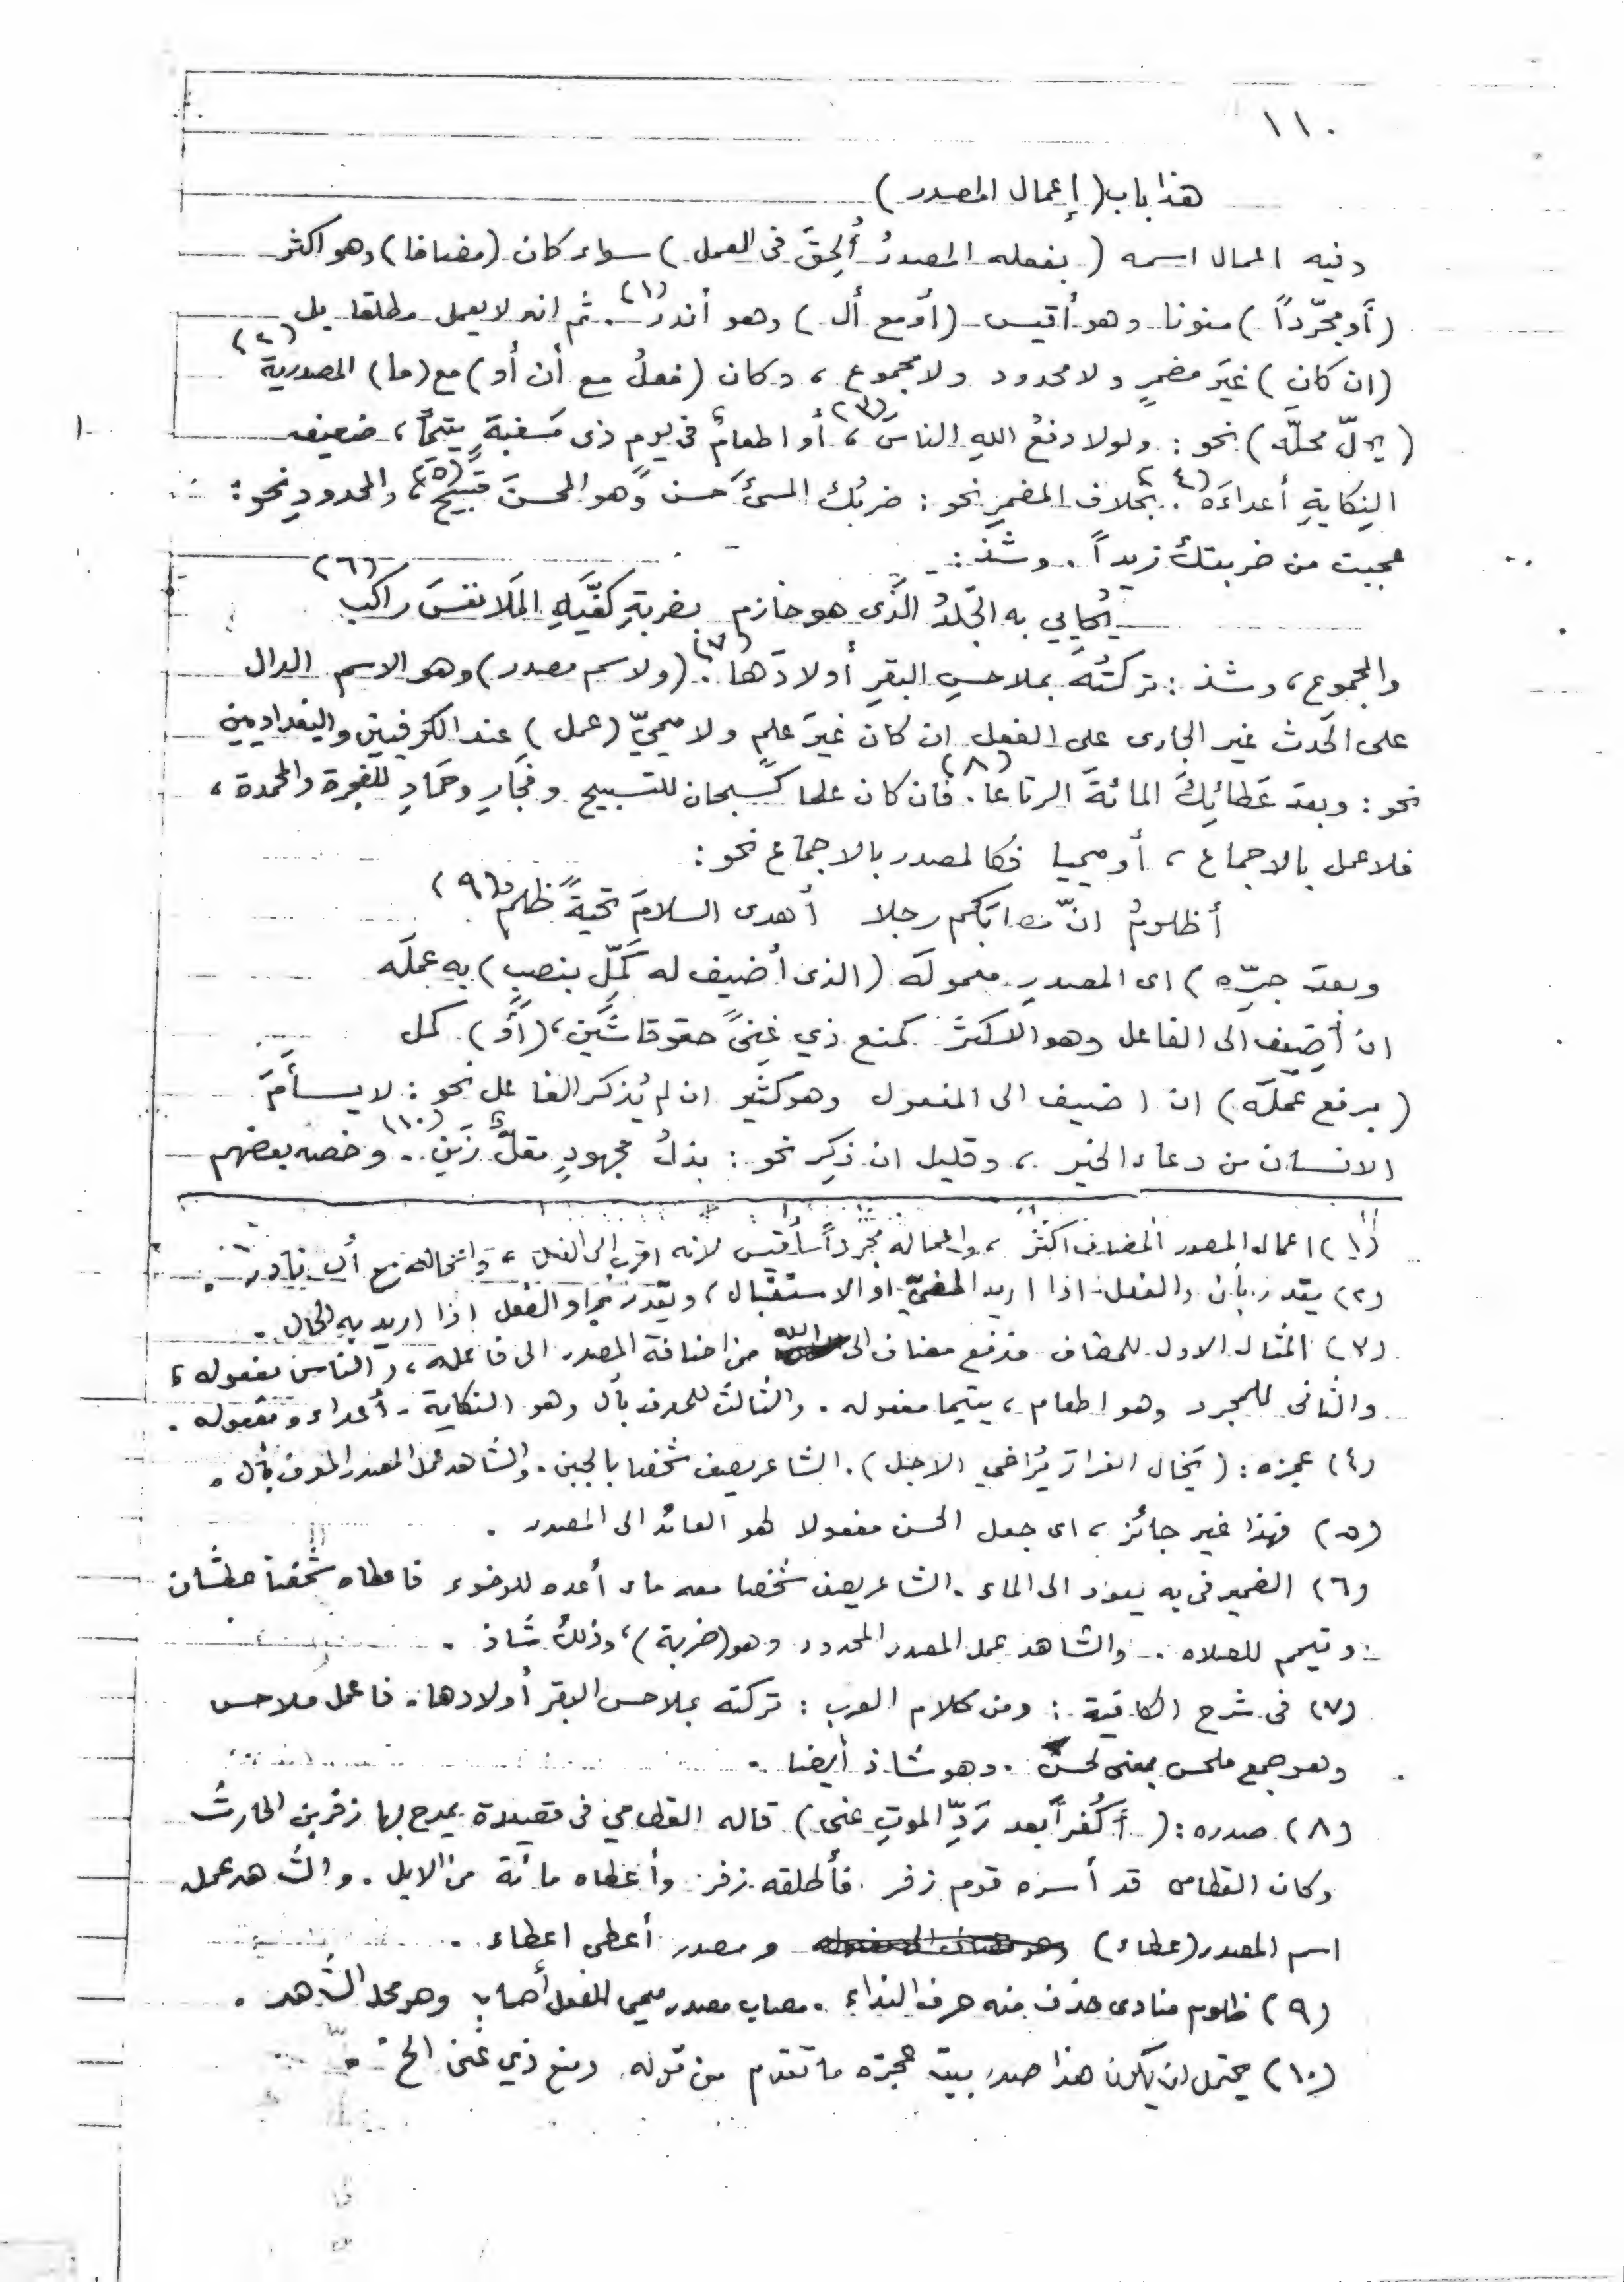 ١١٠
هذا باب (إعمال المصدر)
وفيه اعمال اسمه (بفعله المصدرُ أُلحِقَ فى العمل) سواء كان (مضافا) وهو اكثر
(أو مجرّداً) منونا وهو أقيس (أو مع أل) وهو أندر (١). ثم انه لا يعمل مطلقا بل
(ان كان) غيرَ مضمرٍ ولا محدود ولا مجموع، وكان (فعلٌ مع أن أو) مع (ما) المصدرية (٢)
(يحلّ محلّه) نحو: ولولا دفعُ اللهِ الناسَ، أو اطعامٌ فى يومٍ ذى مسغبةٍ يتيمًا (٣)، ضعيف
النِكايةِ أعداءَه (٤). بخلاف المضمرِ نحو: ضربُك المسئَ حسن وهو المحسنَ قبيحٌ (٥)، والمحدودِ نحو:
عجبت من ضربتك زيداً. وشذ:
يُحايي به الجَلدُ الذى هو حازم بضربةِ كفّيهِ المَلا نفسَ راكب (٦)
والمجموع، وشذ: تركتُه بملاحسِ البقرِ أولادَها (٧). (ولاسم مصدر) وهو الاسم الدال
على الحَدث غير الجارى على الفعل ان كان غيرَ علمٍ ولا ميميّ (عمل) عند الكوفيين والبغداديين
نحو: وبعد عَطائِكَ المائةَ الرتاعا (٨). فان كان علما كسبحان للتسبيح وفجَارِ وحمَادِ للفجرة والمحمدة،
فلا عمل بالاجماع، أو ميميا فكالمصدر بالاجماع نحو:
أظلومُ انّ مصابَكم رجلا أهدى السلامَ تحيةً ظلم (٩)
وبعد جرّه) اى المصدرِ معمولَه (الذى أُضيف له كمّل بنصبٍ) به عملَه
ان أضيف الى الفاعل وهو الاكثر كمنع ذي غِنىً حقوقا شَين، (أو) كمل
(برفع عملَه) ان اضيف الى المفعول وهو كثير ان لم يُذكر الفاعل نحو: لا يسأمَ
الانسان من دعاء الخير، وقليل ان ذكِر نحو: بذلُ مجهودٍ مقلٌّ زَين (١٠). وخصه بعضهم
(١) اعمال المصدر المضاف اكثر، واعماله مجرداً أقيس لانه اقرب الى الفعل، واعماله مع أل نادر.
(٢) يقدر بأن والفعل اذا اريد المضيّ او الاستقبال، ويقدر بما والفعل اذا اريد به الحال.
(٣) المثال الاول للمضاف فدفع مضاف الى الله من اضافة المصدر الى فاعله، والناس مفعوله،
والثانى للمجرد وهو اطعام، يتيما مفعوله. والثالث للمعرف بأل وهو النكاية. أعداءه مفعوله.
(٤) عجزه: (يَخال الفرار يُراخي الاجل). الشاعر يصف شخصا بالجبن. والشاهد عمل المصدر المعرف بأل.
(٥) فهذا غير جائز، اى جعل المحسن مفعولا لهو العائد الى المصدر.
(٦) الضمير فى به يعود الى الماء. الشاعر يصف شخصا معه ماء أعده للوضوء فاعطاه شخصا عطشان
وتيمم للصلاه. والشاهد عمل المصدر المحدود وهو (ضربة)، وذلك شاذ.
(٧) فى شرح الكافية: ومن كلام العرب: تركته بملاحس البقر أولادها. فاعمل ملاحس
وهو جمع ملحس بمعنى لحس. وهو شاذ أيضا.
(٨) صدره: (أَكُفراً بعد رَدِّ الموتِ عنى) قاله القطامي فى قصيدة يمدح بها زفر بن الحارث
وكان القطامى قد أسره قوم زفر. فأطلقه زفر وأعطاه مائة من الابل. والشاهد عمل
اسم المصدر (عطاء) ومصدر أعطى اعطاء.
(٩) ظلوم منادى حذف منه حرف النداء. مصاب مصدر ميمى للفعل أصاب وهو محل الشاهد.
(١٠) يحتمل ان يكون هذا صدر بيت عجزه ما تقدم من قوله ومنع ذي غنى الخ.